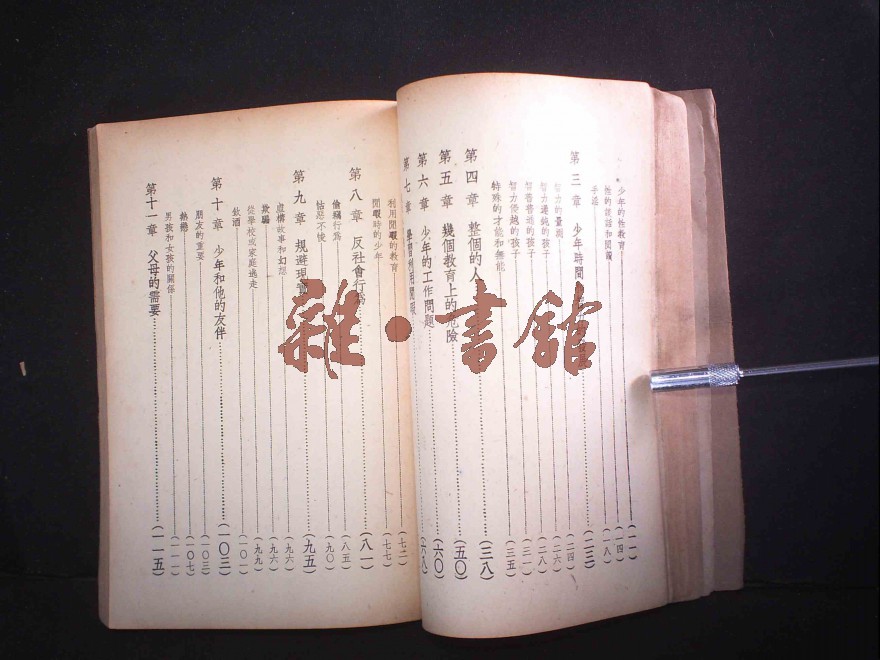 少年的性教育……(一一)
性的談話和閱讀……(一四)
手淫……(一八)
第三章 少年時間……(二三)
智力的量測……(二四)
智力遲鈍的孩子……(二六)
智力普通的孩子……(二八)
智力優越的孩子……(三一)
特殊的才能和無能……(三五)
第四章 整個的人……(三八)
第五章 幾個教育上的危險……(五〇)
第六章 少年的工作問題……(六〇)
第七章 學習利用閒暇……(六八)
利用閒暇的教育……(七二)
閒暇時的少年……(七七)
第八章 反社會行為……(八一)
偷竊行為……(八五)
怙惡不悛……(九〇)
第九章 規避現實……(九五)
虛構故事和幻想……(九六)
欺騙……(九六)
從學校或家庭逃走……(九九)
飲酒……(一〇一)
第十章 少年和他的友伴……(一〇三)
朋友的重要……(一〇三)
熱戀……(一〇七)
男孩和女孩的關係……(一一一)
第十一章 父母的需要……(一一五)
雜·書館